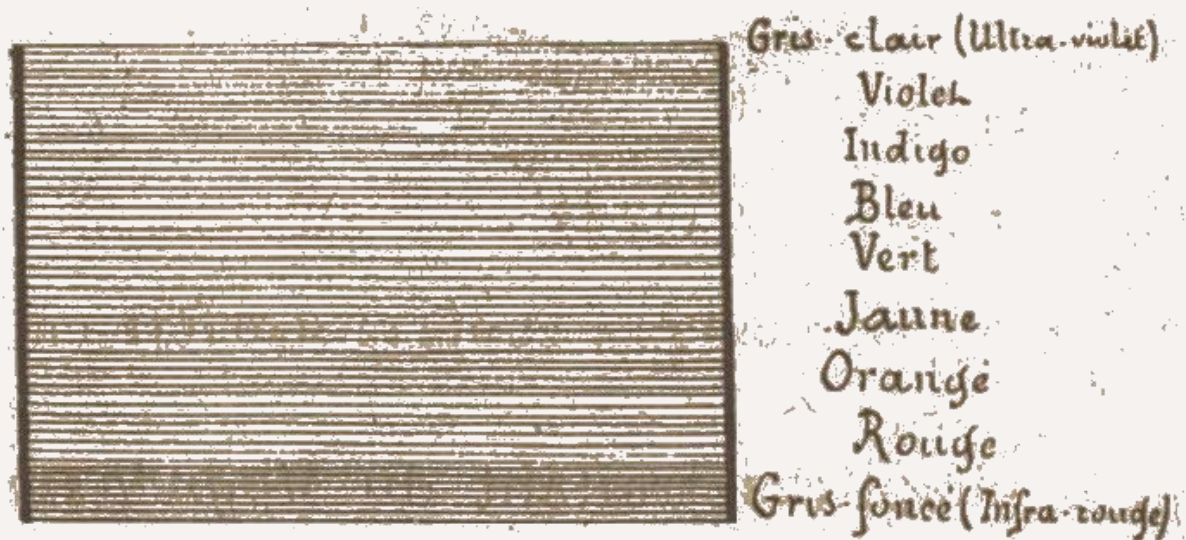 Gris-clair (Ultra-violet)
Violet
Indigo
Bleu
Vert
Jaune
Orangé
Rouge
Gris-foncé (Infra-rouge)